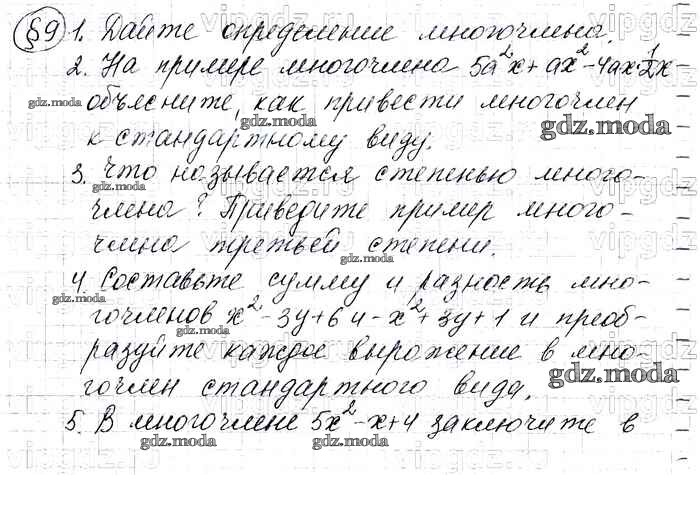 §9 1. Дайте определение многочлена.
2. На примере многочлена 5a²x+ax²-4ax·½x
объясните, как привести многочлен
к стандартному виду.
3. Что называется степенью много-
члена? Приведите пример много-
члена третьей степени.
4. Составьте сумму и разность мно-
гочленов x²-3y+6 и -x²+3y+1 и преоб-
разуйте каждое выражение в мно-
гочлен стандартного вида.
5. В многочлене 5x²-x+4 заключите в
gdz.moda
gdz.moda
gdz.moda
gdz.moda
gdz.moda
gdz.moda
gdz.moda
gdz.moda
gdz.moda